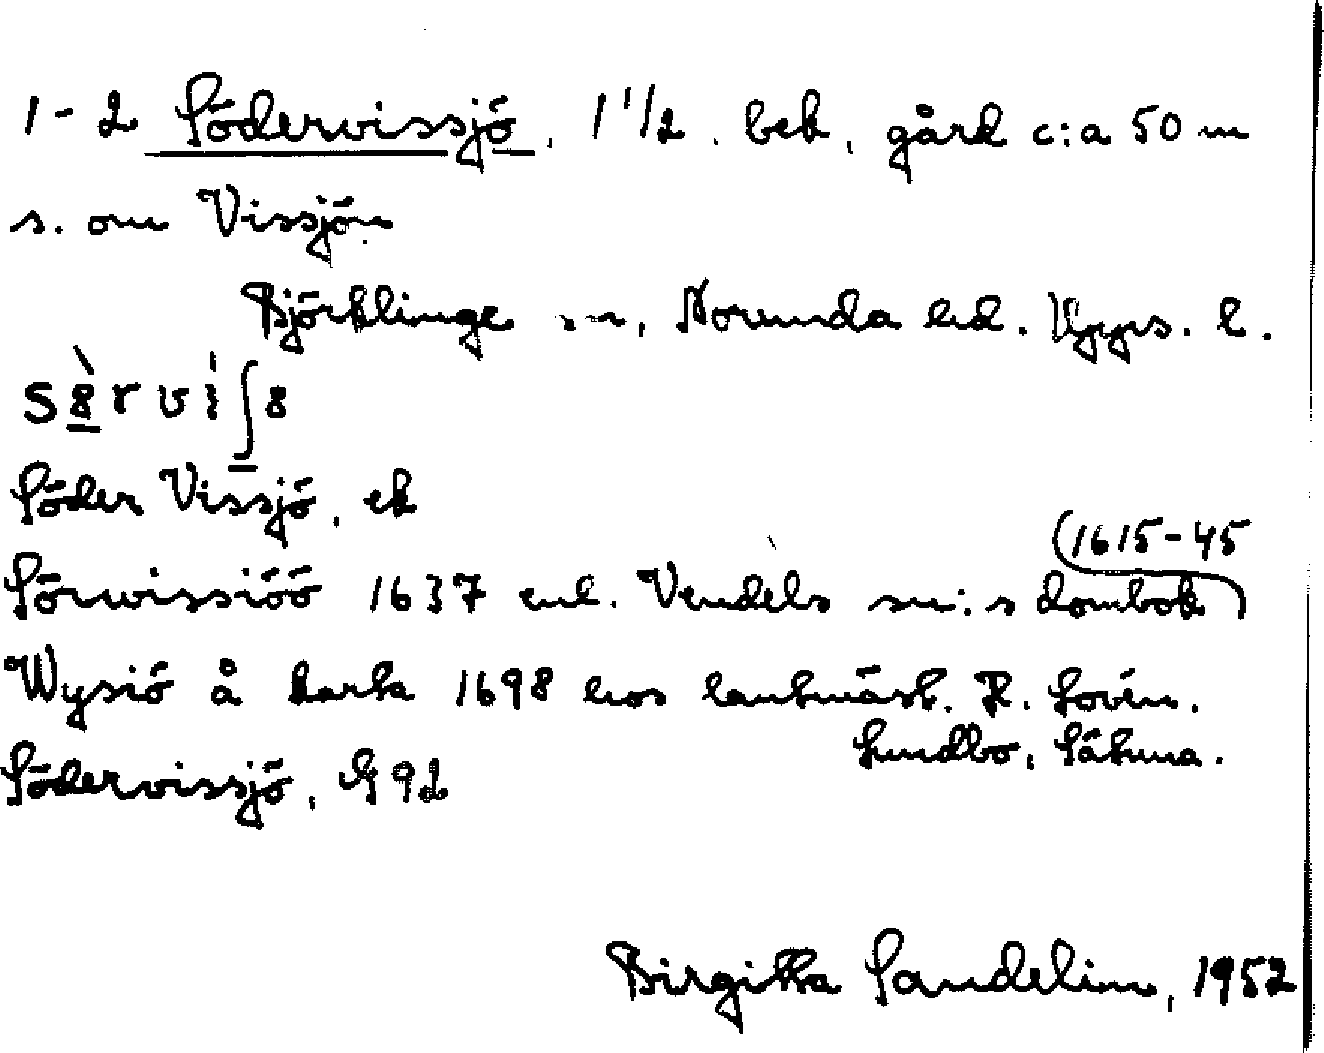 1-2 Södervissjö, 1 1/2, beb. gård c:a 50 m
s. om Vissjön
Björklinge sn, Norunda hd. Upps. l.
Söder Vissjö, ek
Sörwissiöö 1637 enl. Vendels sn:s dombok (1615-45)
Wysiö å karta 1698 hos lantmät. R. Lovén.
Lundbo, Sätuna.
Södervissjö, G 92
Birgitta Sandelin, 1952